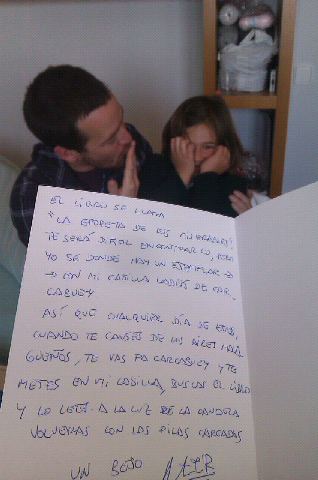 EL LIBRO SE LLAMA
"LA EPOPEYA DE LOS
TE SERÁ DIFÍCIL ENCONTRARLO, PERO
YO SE DONDE HAY UN EJEMPLAR →
→ EN MI CASILLA LADOS DE CAR
CABUEY
ASÍ QUE CUALQUIER DÍA DE ESTOS,
CUANDO TE CANSES DE LOS AIRES MARI
GÜEÑOS, TE VAS PA CARCABUEY Y TE
METES EN MI CASILLA, BUSCAS EL LIBRO
Y LO LEES A LA LUZ DE LA CANDELA
VOLVERÁS CON LAS PILAS CARGADAS
UN BESO